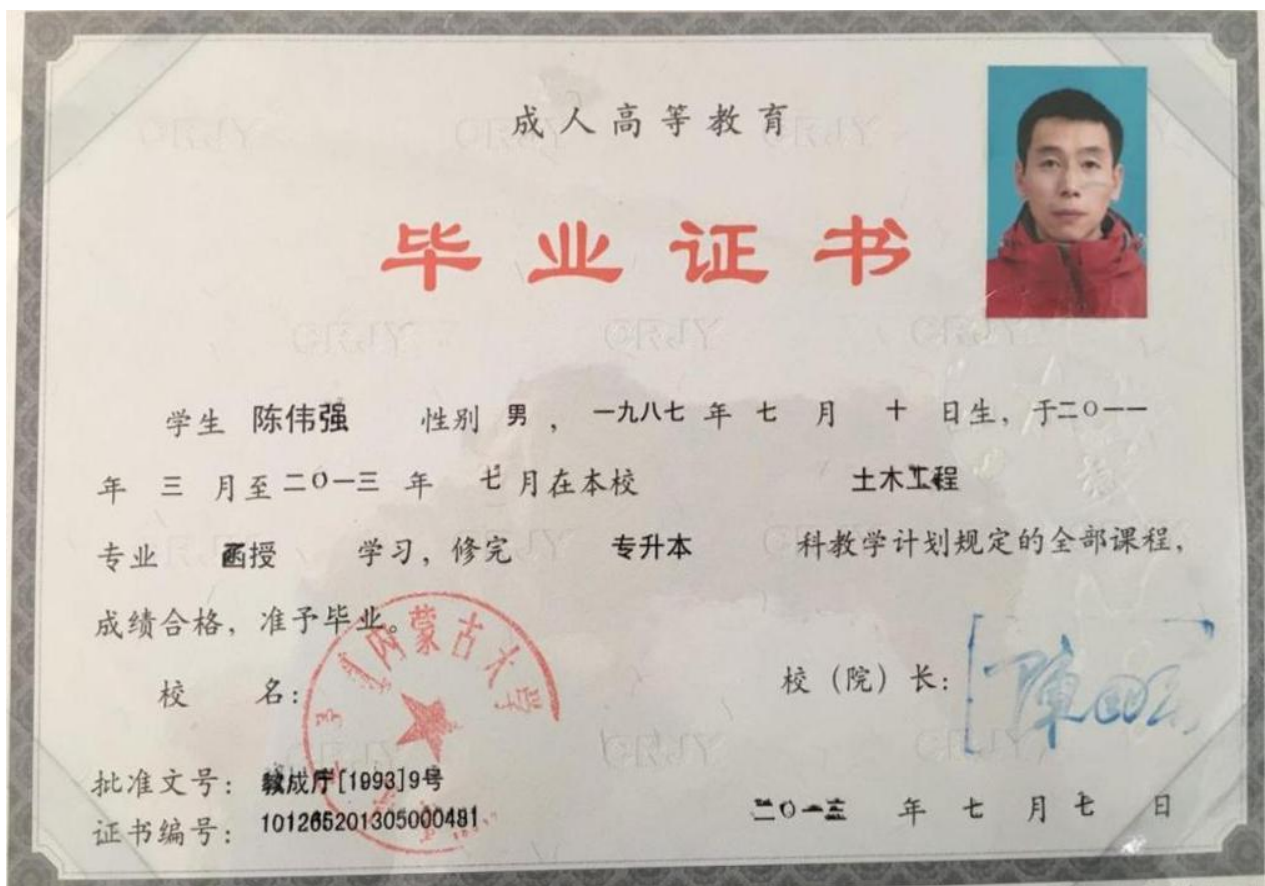 成人高等教育
毕业证书
学生 陈伟强 性别 男 , 一九八七 年 七 月 十 日生, 于二〇一一
年 三 月至二〇一三 年 七月在本校 土木工程
专业 函授 学习, 修完 专升本 科教学计划规定的全部课程,
成绩合格, 准予毕业。
校 名: 内蒙古大学
校 (院) 长:
批准文号: 教成厅[1993]9号
证书编号: 101265201305000481
二〇一三 年 七 月 七 日